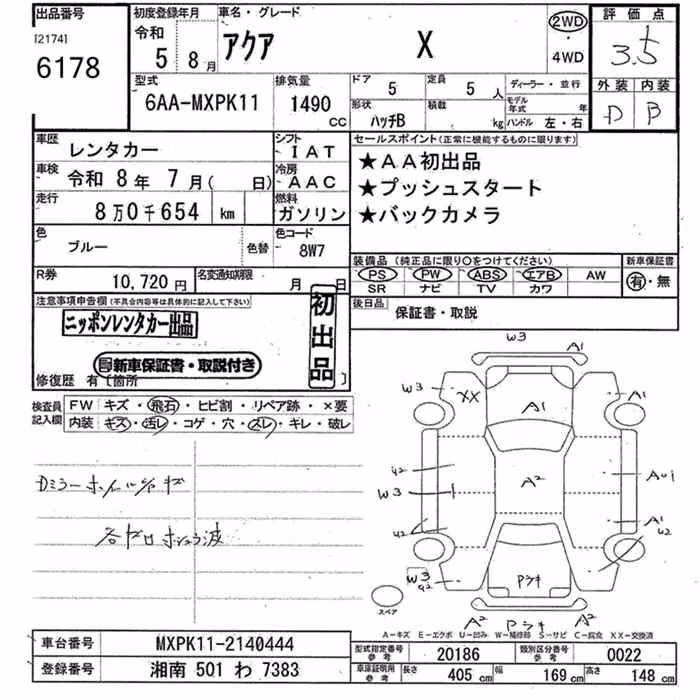 出品番号
[2174]
6178
初度登録年月
令和
5 8月
車名・グレード
アクア X
2WD
・
4WD
評価点
3.5
外装 内装
D B
型式
6AA-MXPK11
排気量
1490
CC
ドア
5
定員
5 人
形状
ハッチB
積載
kg
ディーラー・並行
モデル年式 年
ハンドル 左・右
車歴
レンタカー
シフト
IAT
車検
令和 8年 7月( 日)
冷房
AAC
走行
8万0千654 km
燃料
ガソリン
色
ブルー
色替
色コード
8W7
R券
10,720円
名変通知期限
月 日
セールスポイント(正常に機能するものに限ります)
★AA初出品
★プッシュスタート
★バックカメラ
装備品(純正品に限り○をつけてください)
PS PW ABS エアB AW
SR ナビ TV カワ
新車保証書
有・無
後日品
保証書・取説
注意事項申告欄(不具合内容等は具体的に記入して下さい)
ニッポンレンタカー出品
初出品
新車保証書・取説付き
修復歴 有[箇所 ]
検査員記入欄
FW キズ・飛石・ヒビ割・リペア跡・×要
内装 キズ・汚レ・コゲ・穴・スレ・キレ・破レ
Dミラー ホイール キズ
W3
A1
W3
XX
A1
A1
W3
A2
A1
W2
W3
A2
A2
スペア
A−キズ E−エクボ U−凹み W−補修跡 S−サビ C−腐食 XX−交換済
車台番号
MXPK11-2140444
登録番号
湘南 501 わ 7383
型式指定番号
参考
20186
類別区分番号
参考
0022
車庫証明用
参考
長さ
405 cm
幅
169 cm
高さ
148 cm